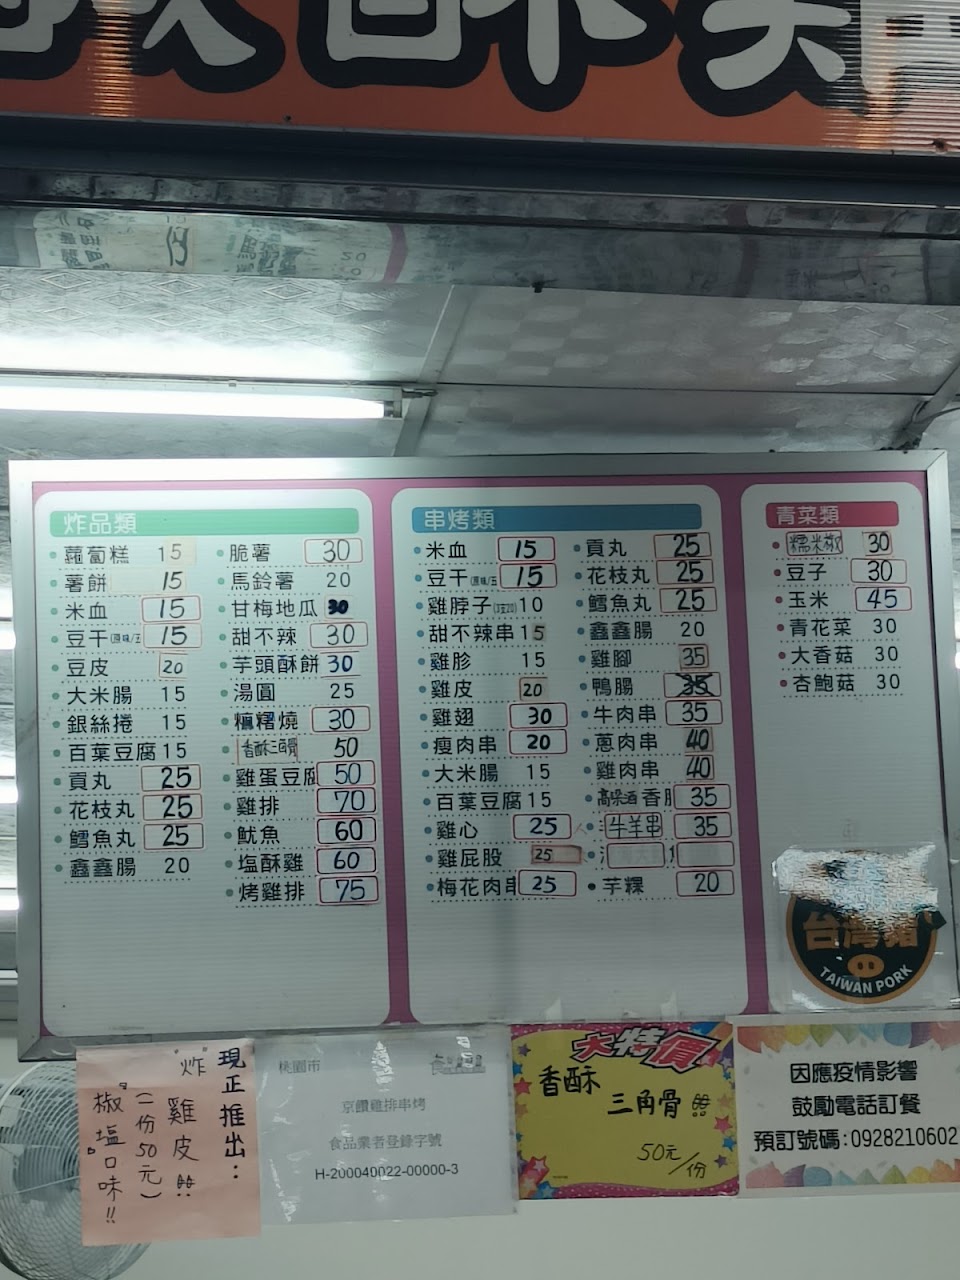 炸品類
蘿蔔糕 15
薯餅 15
米血 15
豆干 15
豆皮 20
大米腸 15
銀絲捲 15
百葉豆腐 15
貢丸 25
花枝丸 25
鱈魚丸 25
鑫鑫腸 20
脆薯 30
馬鈴薯 20
甘梅地瓜 30
甜不辣 30
芋頭酥餅 30
湯圓 25
糯糬燒 30
香酥三角骨 50
雞蛋豆腐 50
雞排 70
魷魚 60
塩酥雞 60
烤雞排 75
串烤類
米血 15
豆干 15
雞脖子(3支20) 10
甜不辣串 15
雞胗 15
雞皮 20
雞翅 30
瘦肉串 20
大米腸 15
百葉豆腐 15
雞心 25
雞屁股 25
梅花肉串 25
貢丸 25
花枝丸 25
鱈魚丸 25
鑫鑫腸 20
雞腳 35
鴨腸 35
牛肉串 35
蔥肉串 40
雞肉串 40
高粱酒香腸 35
牛羊串 35
芋粿 20
青菜類
糯米椒 30
豆子 30
玉米 45
青花菜 30
大香菇 30
杏鮑菇 30
台灣豬
TAIWAN PORK
現正推出：
炸雞皮!!
(一份50元)
椒塩口味!!
桃園市
京饌雞排串烤
食品業者登錄字號
H-200040022-00000-3
大特價
香酥
三角骨!!
50元/份
因應疫情影響
鼓勵電話訂餐
預訂號碼:0928210602